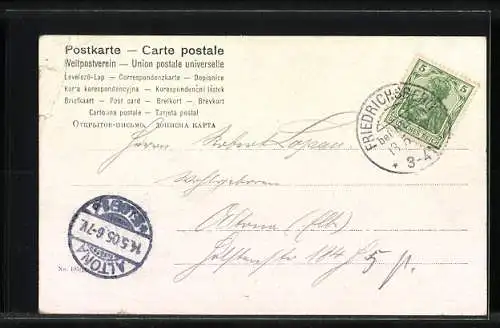 Postkarte — Carte postale
Weltpostverein — Union postale universelle
Levelező-Lap — Correspondenzkarte — Dopisnice
Karta korespondencyjna — Korespondenční lístek
Briefkaart — Post card — Brefkort — Brevkort
Cartolina postale — Tarjeta postal
Открытое письмо. Дописна карта
5 5
DEUTSCHES REICH
FRIEDRICHSBERG
3-4
Herrn Robert
Wohlgeboren
Altona (Elbe)
ALTONA
14.5.05.6-7V.